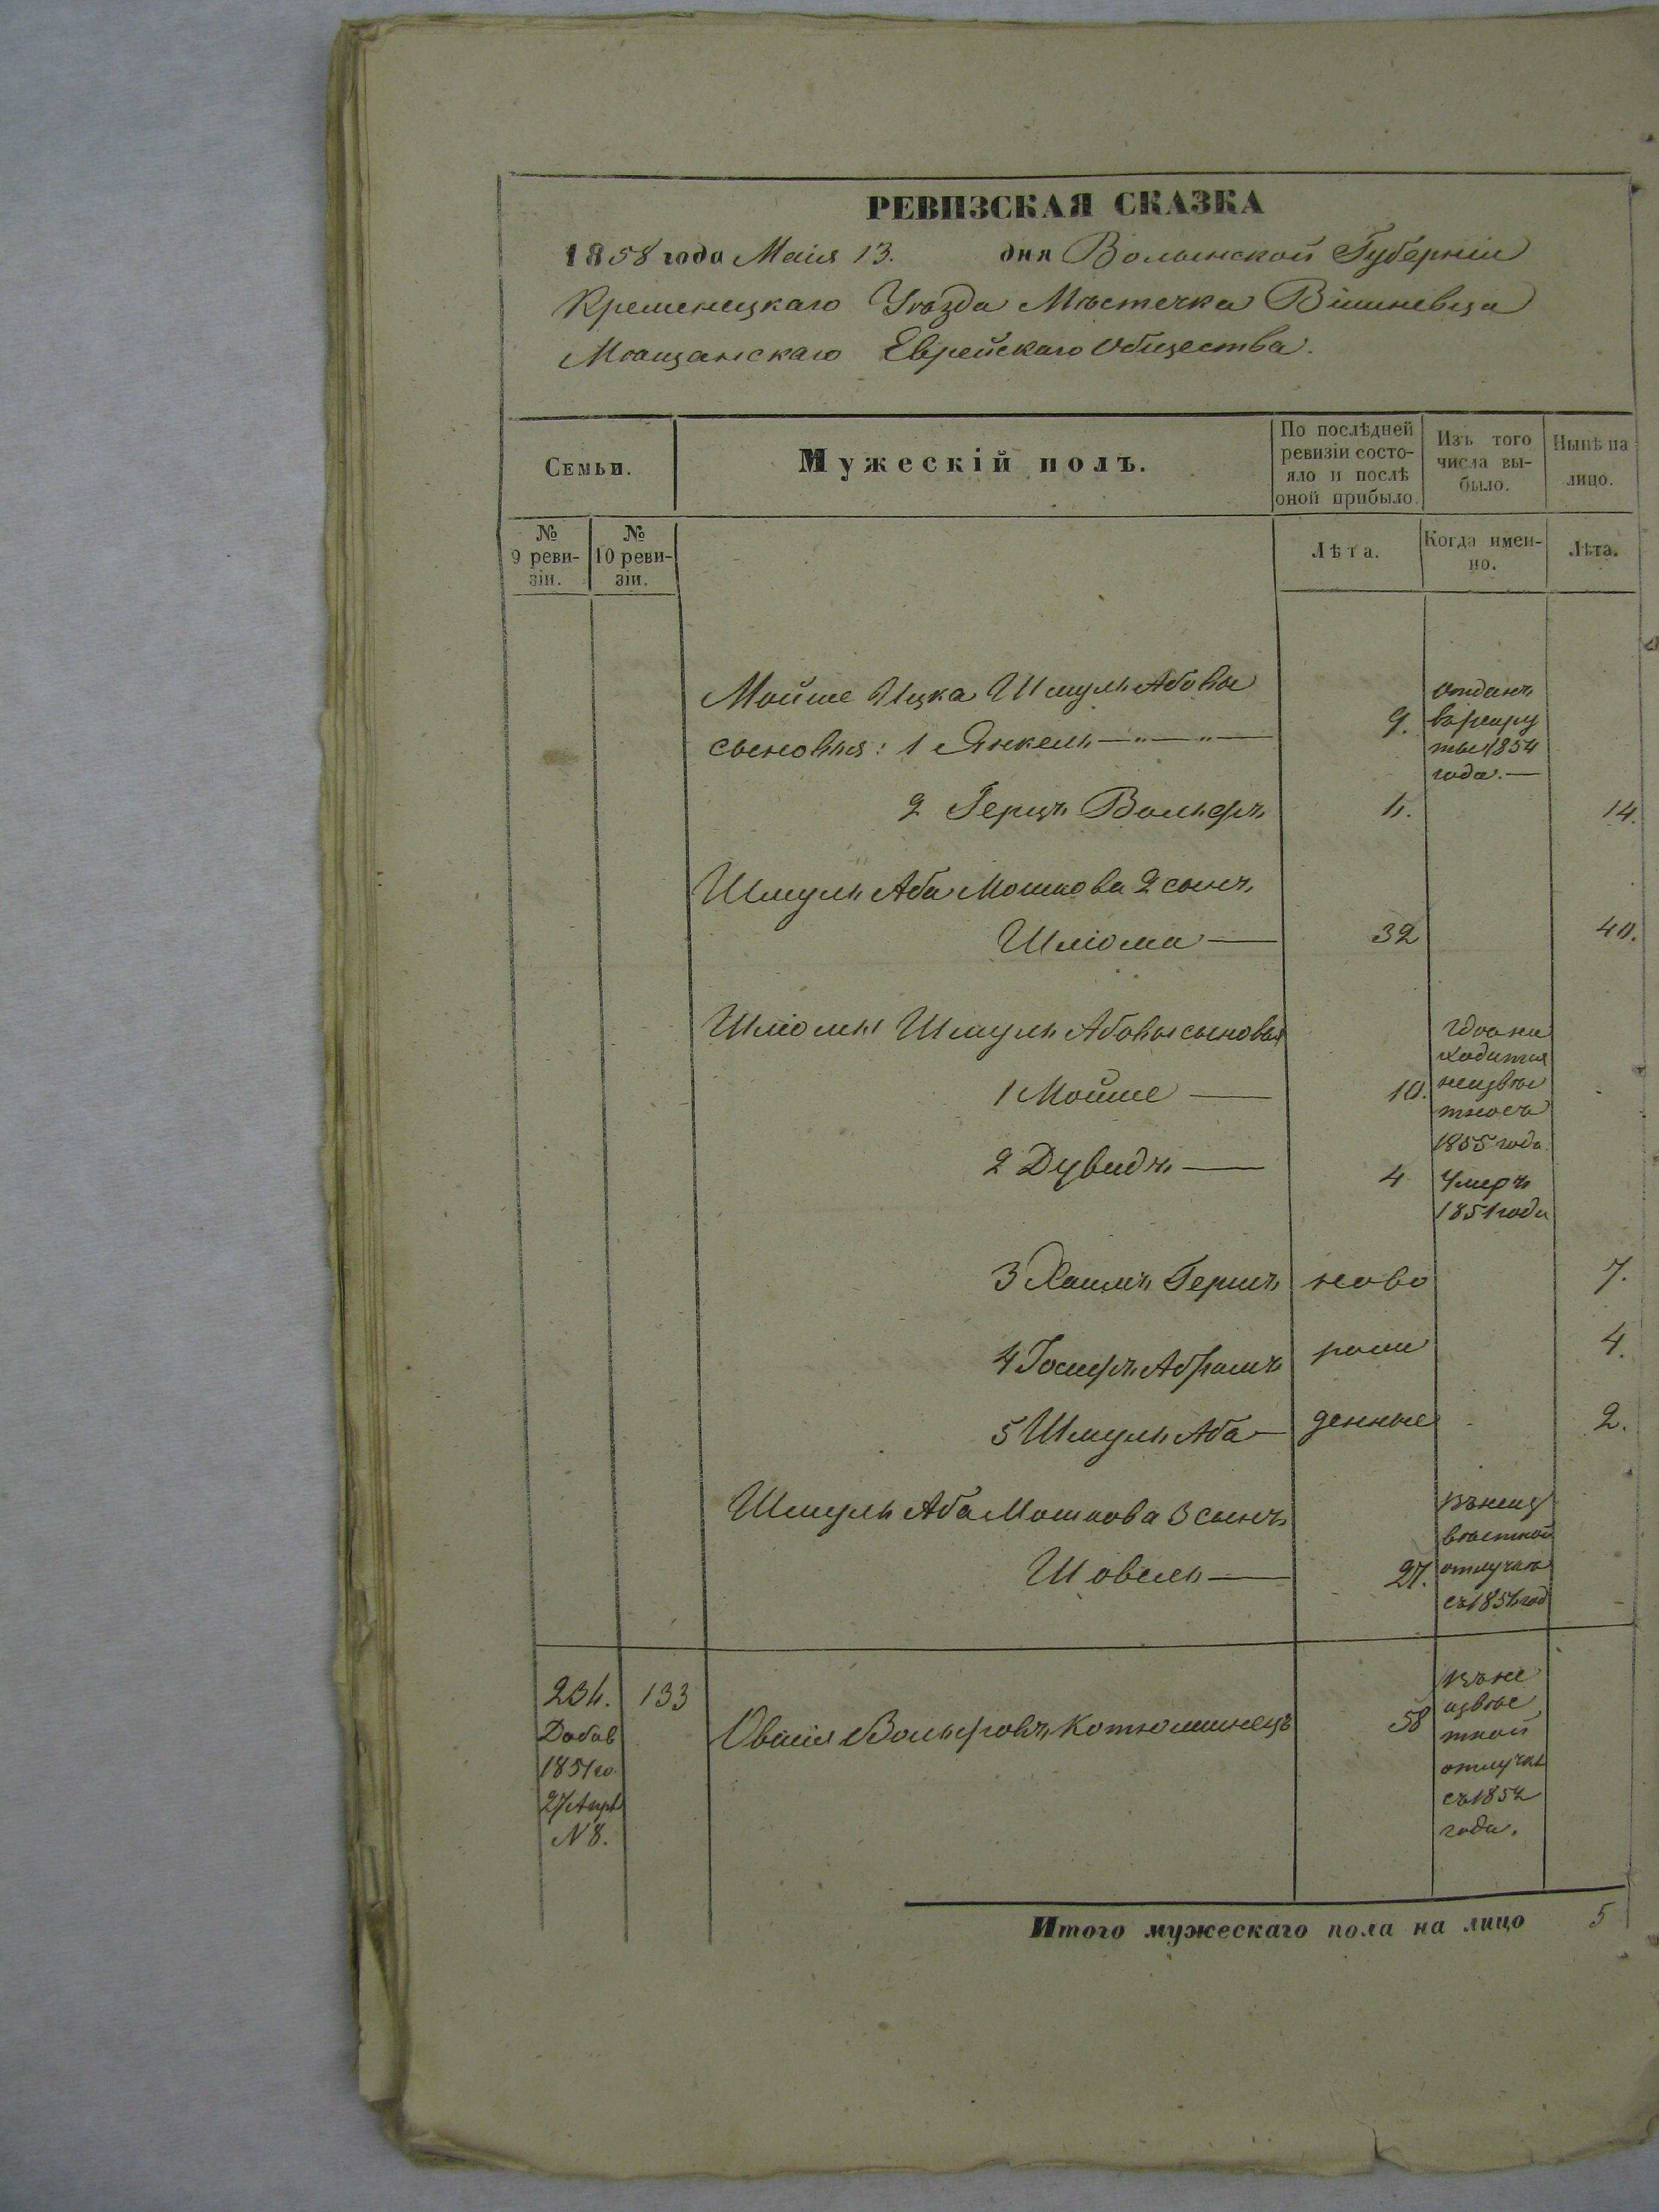 РЕВИЗСКАЯ СКАЗКА
1858 года Маія 13. дня Волынской Губерніи
Кременецкаго Уѣзда Мѣстечка Вишневца
Мѣщанскаго Еврейскаго Общества.
Семьи.
Мужескій полъ.
По послѣдней
ревизіи состо-
яло и послѣ
оной прибыло.
Изъ того
числа вы-
было.
Нынѣ на
лицо.
№
9 реви-
зіи.
№
10 реви-
зіи.
Лѣта.
Когда имен-
но.
Лѣта.
Мойше Ицка Шмуль Абовы
сыновья: 1 Янкель —„—„— 9.
отданъ
въ рекру
ты 1854
года.—
2 Герцъ Вольфъ 14.
Шмуль Аба Мошкова 2 сынъ
Шліома — 32 40.
Шліомы Шмуль Абовы сыновья
1 Мойше — 10.
гдѣ на
ходится
неизвѣс
тно съ
1855 года.
2 Дувидъ — 4
Умеръ
1851 года
3 Хаимъ Гершъ ново 7.
4 Іосифъ Абрамъ рож 4.
5 Шмуль Аба — денные 2.
Шмуль Аба Мошкова 3 сынъ
Шовель — 27.
въ неиз
вѣстной
отлучкѣ
234. 133
Добав
1851 го.
27 Апр
N 8.
Вольфовъ 58
въ не
извѣс
тной
отлучкѣ
съ 1852
года.
Итого мужескаго пола на лицо 5